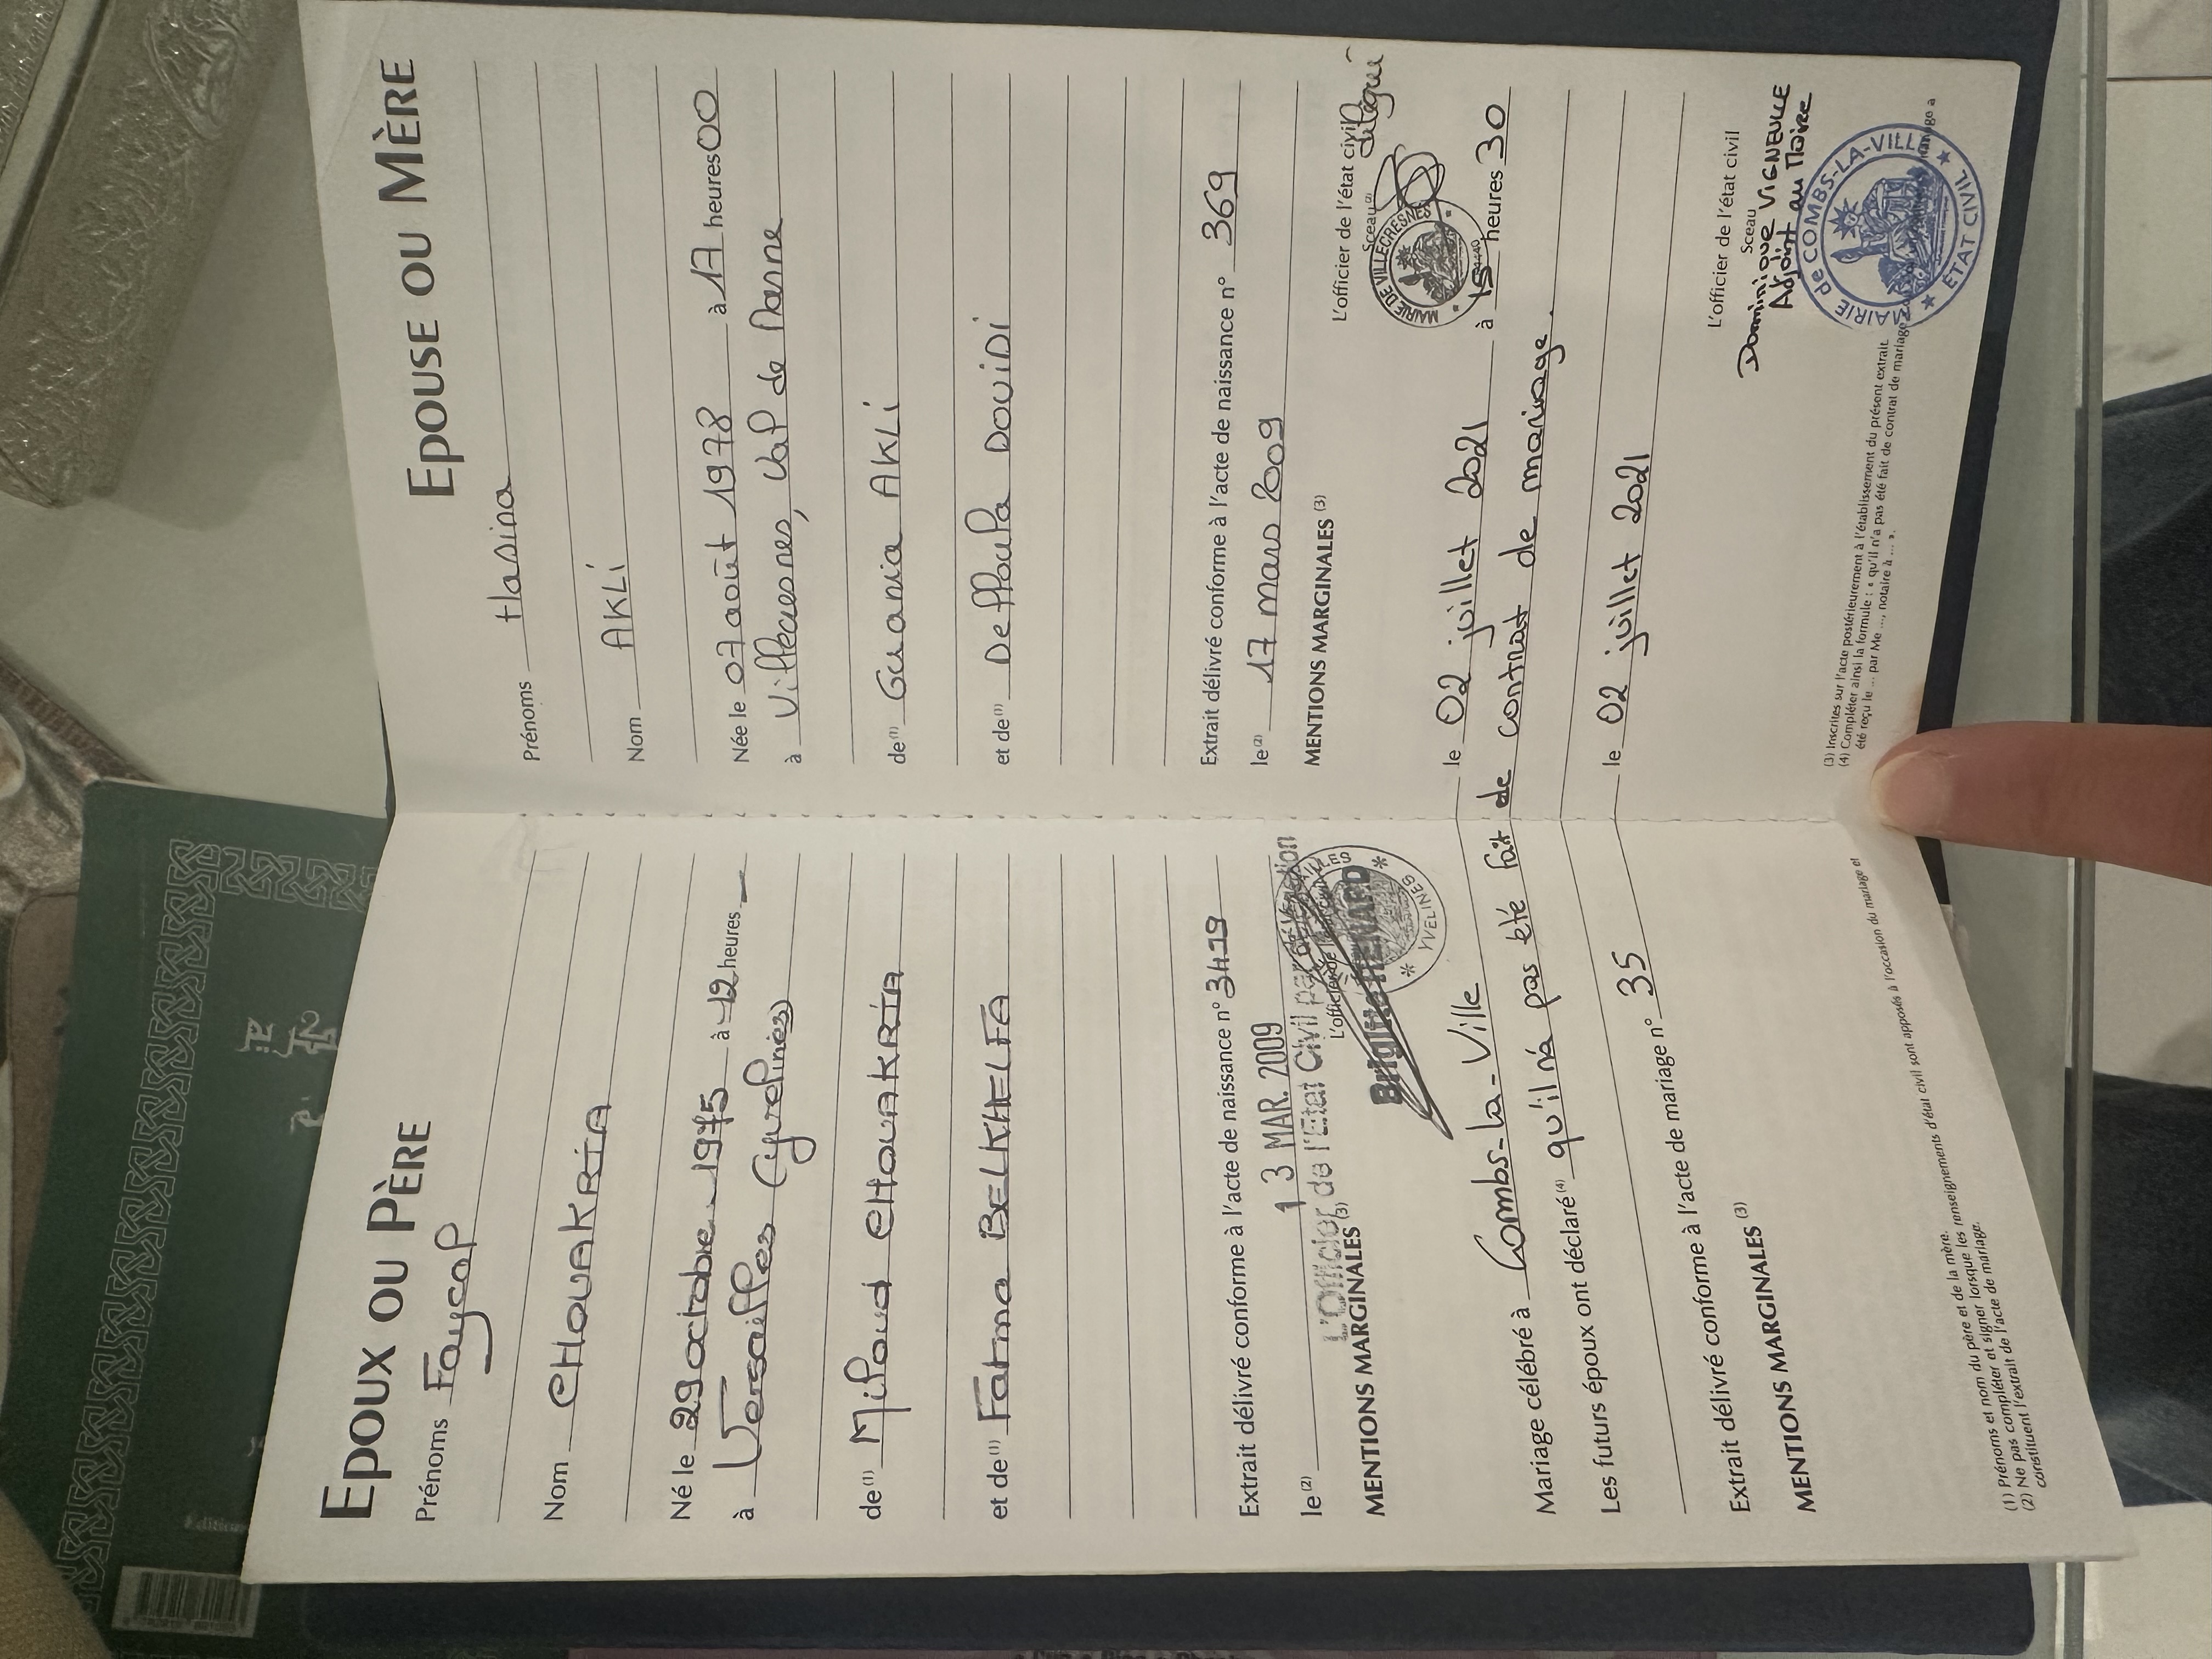 EPOUX OU PÈRE
Prénoms Fayçal
Nom CHOUAKRIA
Né le 29 octobre 1975 à 12 heures —
à Versailles (Yvelines)
de(1) Miloud CHOUAKRIA
et de(1) Fatma BELKHELFA
Extrait délivré conforme à l'acte de naissance n° 3419
le(2) 13 MAR. 2009
L'Officier de l'Etat Civil par
L'officier de l'état civil
Brigitte RENARD
YVELINES
MENTIONS MARGINALES (3)
EPOUSE OU MÈRE
Prénoms Hasina
Nom AKLI
Née le 07 août 1978 à 17 heures 00
à Villecresnes, Val de Marne
de(1) Gurania AKLI
et de(1) Delloula DOUIDI
Extrait délivré conforme à l'acte de naissance n° 369
le(2) 17 mars 2009
L'officier de l'état civil délégué
Sceau(2)
MAIRIE DE VILLECRESNES
MENTIONS MARGINALES (3)
Mariage célébré à Combs-la-Ville le 02 juillet 2021 à 15 heures 30
Les futurs époux ont déclaré(4) qu'il n'a pas été fait de contrat de mariage.
Extrait délivré conforme à l'acte de mariage n° 35 le 02 juillet 2021
MENTIONS MARGINALES (3)
L'officier de l'état civil
Sceau
Dominique VIGNEULLE
Adjoint au Maire
MAIRIE de COMBS-LA-VILLE
ETAT CIVIL
(1) Prénoms et nom du père et de la mère.
(2) Ne pas compléter et signer lorsque les renseignements d'état civil sont apposés à l'occasion du mariage et
constituent l'extrait de l'acte de mariage.
(3) Inscrites sur l'acte postérieurement à l'établissement du présent extrait.
(4) Compléter ainsi la formule : « qu'il n'a pas été fait de contrat de mariage
été reçu le ... par Me ..., notaire à ... ».